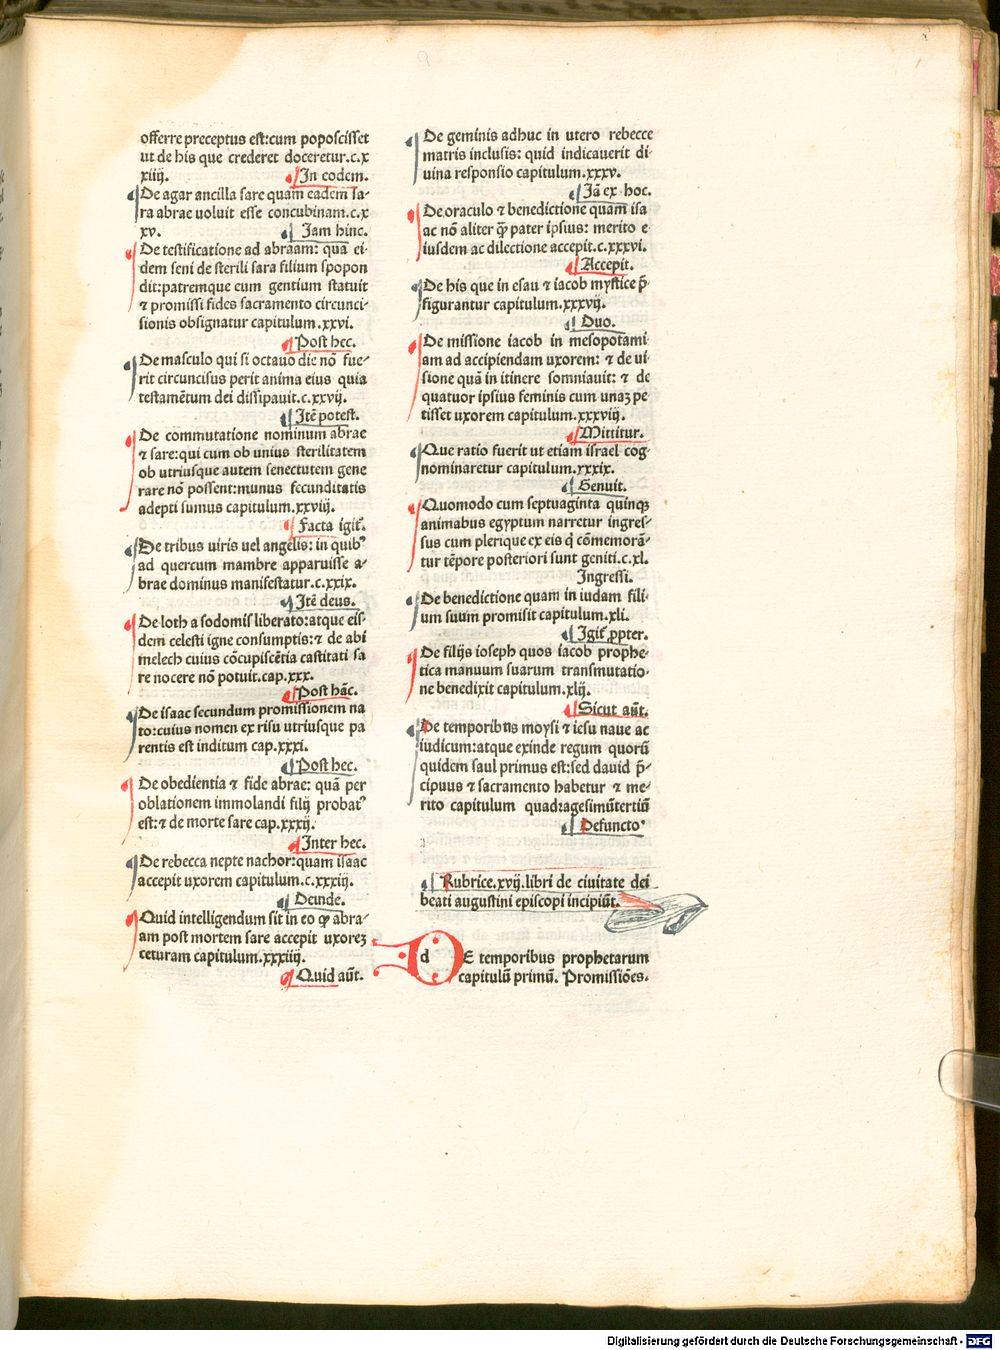 offerre preceptus est:cum poposcisset
ut de his que crederet doceretur.c.x
xiiij.
In eodem.
De agar ancilla sare quam eadem sa⸗
ra abrae uoluit esse concubinam.c.x
xv.
Jam hinc.
De testificatione ad abraam: qua ei⸗
dem seni de sterili sara filium spopon
dit:patremque eum gentium statuit
⁊ promissi fides sacramento circunci⸗
sionis obsignatur capitulum.xxvi.
Post hec.
De masculo qui si octauo die nō fue⸗
rit circuncisus perit anima eius quia
testamētum dei dissipauit.c.xxvij.
Itē potest.
De commutatione nominum abrae
⁊ sare:qui cum ob unius sterilitatem
ob utriusque autem senectutem gene
rare nō possent:munus fecunditatis
adepti sumus capitulum.xxviij.
Facta igit᷑.
De tribus uiris uel angelis: in quibꝰ
ad quercum mambre apparuisse a⸗
brae dominus manifestatur.c.xxix.
Itē deus.
De loth a sodomis liberato:atque eis⸗
dem celesti igne consumptis:⁊ de abi
melech cuius cōcupiscētia castitati sa
re nocere nō potuit.cap.xxx.
Post hāc.
De isaac secundum promissionem na
to:cuius nomen ex risu utriusque pa
rentis est inditum cap.xxxi.
Post hec.
De obedientia ⁊ fide abrae: quā per
oblationem immolandi filij probatꝰ
est:⁊ de morte sare cap.xxxij.
Inter hec.
De rebecca nepte nachor:quam isaac
accepit uxorem capitulum.c.xxxiij.
Deinde.
Quid intelligendum sit in eo ꝙ abra⸗
am post mortem sare accepit uxoreꝫ
ceturam capitulum.xxxiiij.
Quid aūt.
De geminis adhuc in utero rebecce
matris inclusis: quid indicauerit di⸗
uina responsio capitulum.xxxv.
Jā ex hoc.
De oraculo ⁊ benedictione quam isa
ac nō aliter ꝙ̄ pater ipsius: merito e
iusdem ac dilectione accepit.c.xxxvi.
Accepit.
De his que in esau ⁊ iacob mystice p̄
figurantur capitulum.xxxvij.
Duo.
De missione iacob in mesopotami
am ad accipiendam uxorem: ⁊ de ui
sione quā in itinere somniauit: ⁊ de
quatuor ipsius feminis cum unaꝫ pe
tisset uxorem capitulum.xxxviij.
Mittitur.
Que ratio fuerit ut etiam israel cog
nominaretur capitulum.xxxix.
Genuit.
Quomodo cum septuaginta quinqꝫ
animabus egyptum narretur ingres⸗
sus cum plerique ex eis q̄ cōmemorā⸗
tur tēpore posteriori sunt geniti.c.xl.
Ingressi.
De benedictione quam in iudam fili⸗
um suum promisit capitulum.xli.
Igit᷑ ꝓpter.
De filijs ioseph quos iacob prophe⸗
tica manuum suarum transmutatio⸗
ne benedixit capitulum.xlij.
Sicut aūt.
De temporibus moysi ⁊ iesu naue ac
iudicum:atque exinde regum quorū
quidem saul primus est:sed dauid p̄⸗
cipuus ⁊ sacramento habetur ⁊ me⸗
rito capitulum quadragesimūtertiū
Defunctoꝰ
Rubrice.xvij.libri de ciuitate dei
beati augustini episcopi incipiūt.
d E temporibus prophetarum
capitulū primū. Promissiōes.
Digitalisierung gefördert durch die Deutsche Forschungsgemeinschaft - DFG